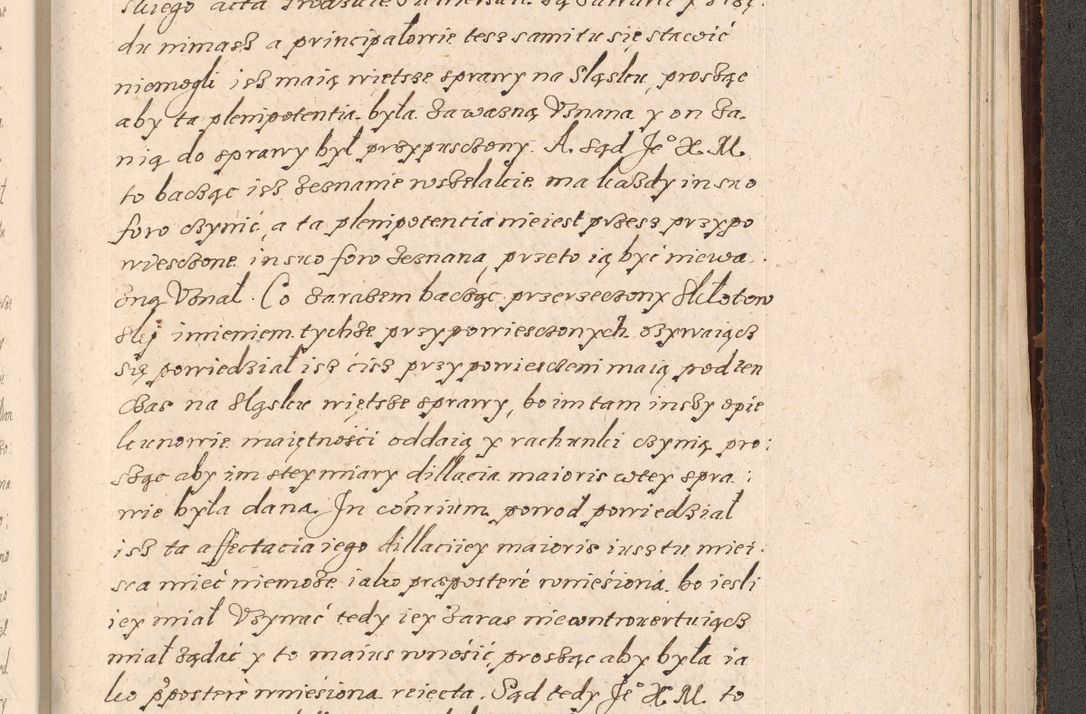 du nimasz a principałowie tesz sami tu się stawić
niemogli isz maią więtsze sprawy na Sląsku, prosząc
aby ta plenipotentia była zawazną Vznana y on za
nią do sprawy był przypuszczony. A Sąd Je° X. M.
to bacząc isz zeznanie wszelakie ma kazdy in suo
foro czynić, a ta plenipotentia nieiest przesz przypo
wiesczone in suo foro zeznana, przeto ią być niewa
zną Vznał. Co zarazem bacząc przerzeczony Skłotow
skij imieniem tychze przypowiesczonych ozywaiącz
się powiedział isz cisz przypowiesczeni maią pod ten
czas na Sląsku więtsze sprawy, bo im tam inszy opie
kunowie maiętności oddaią y rachunki czynią pro:
sząc aby im stey miary dillacia maioris wtey spra:
wie była dana. In cōnrium powod powiedział
isz ta affectacia iego dillaciiey maioris iusz tu miei:
sca mieć niemoze iako præposterè wniesiona bo iesli
iey miał Vzywać tedy iey zaras niecontrouertuiącz
miał ządać y to maius wnosić, prosząc aby była ia
ko p̄posterè wniesiona reiecta. Sąd tedy Je° X. M. to